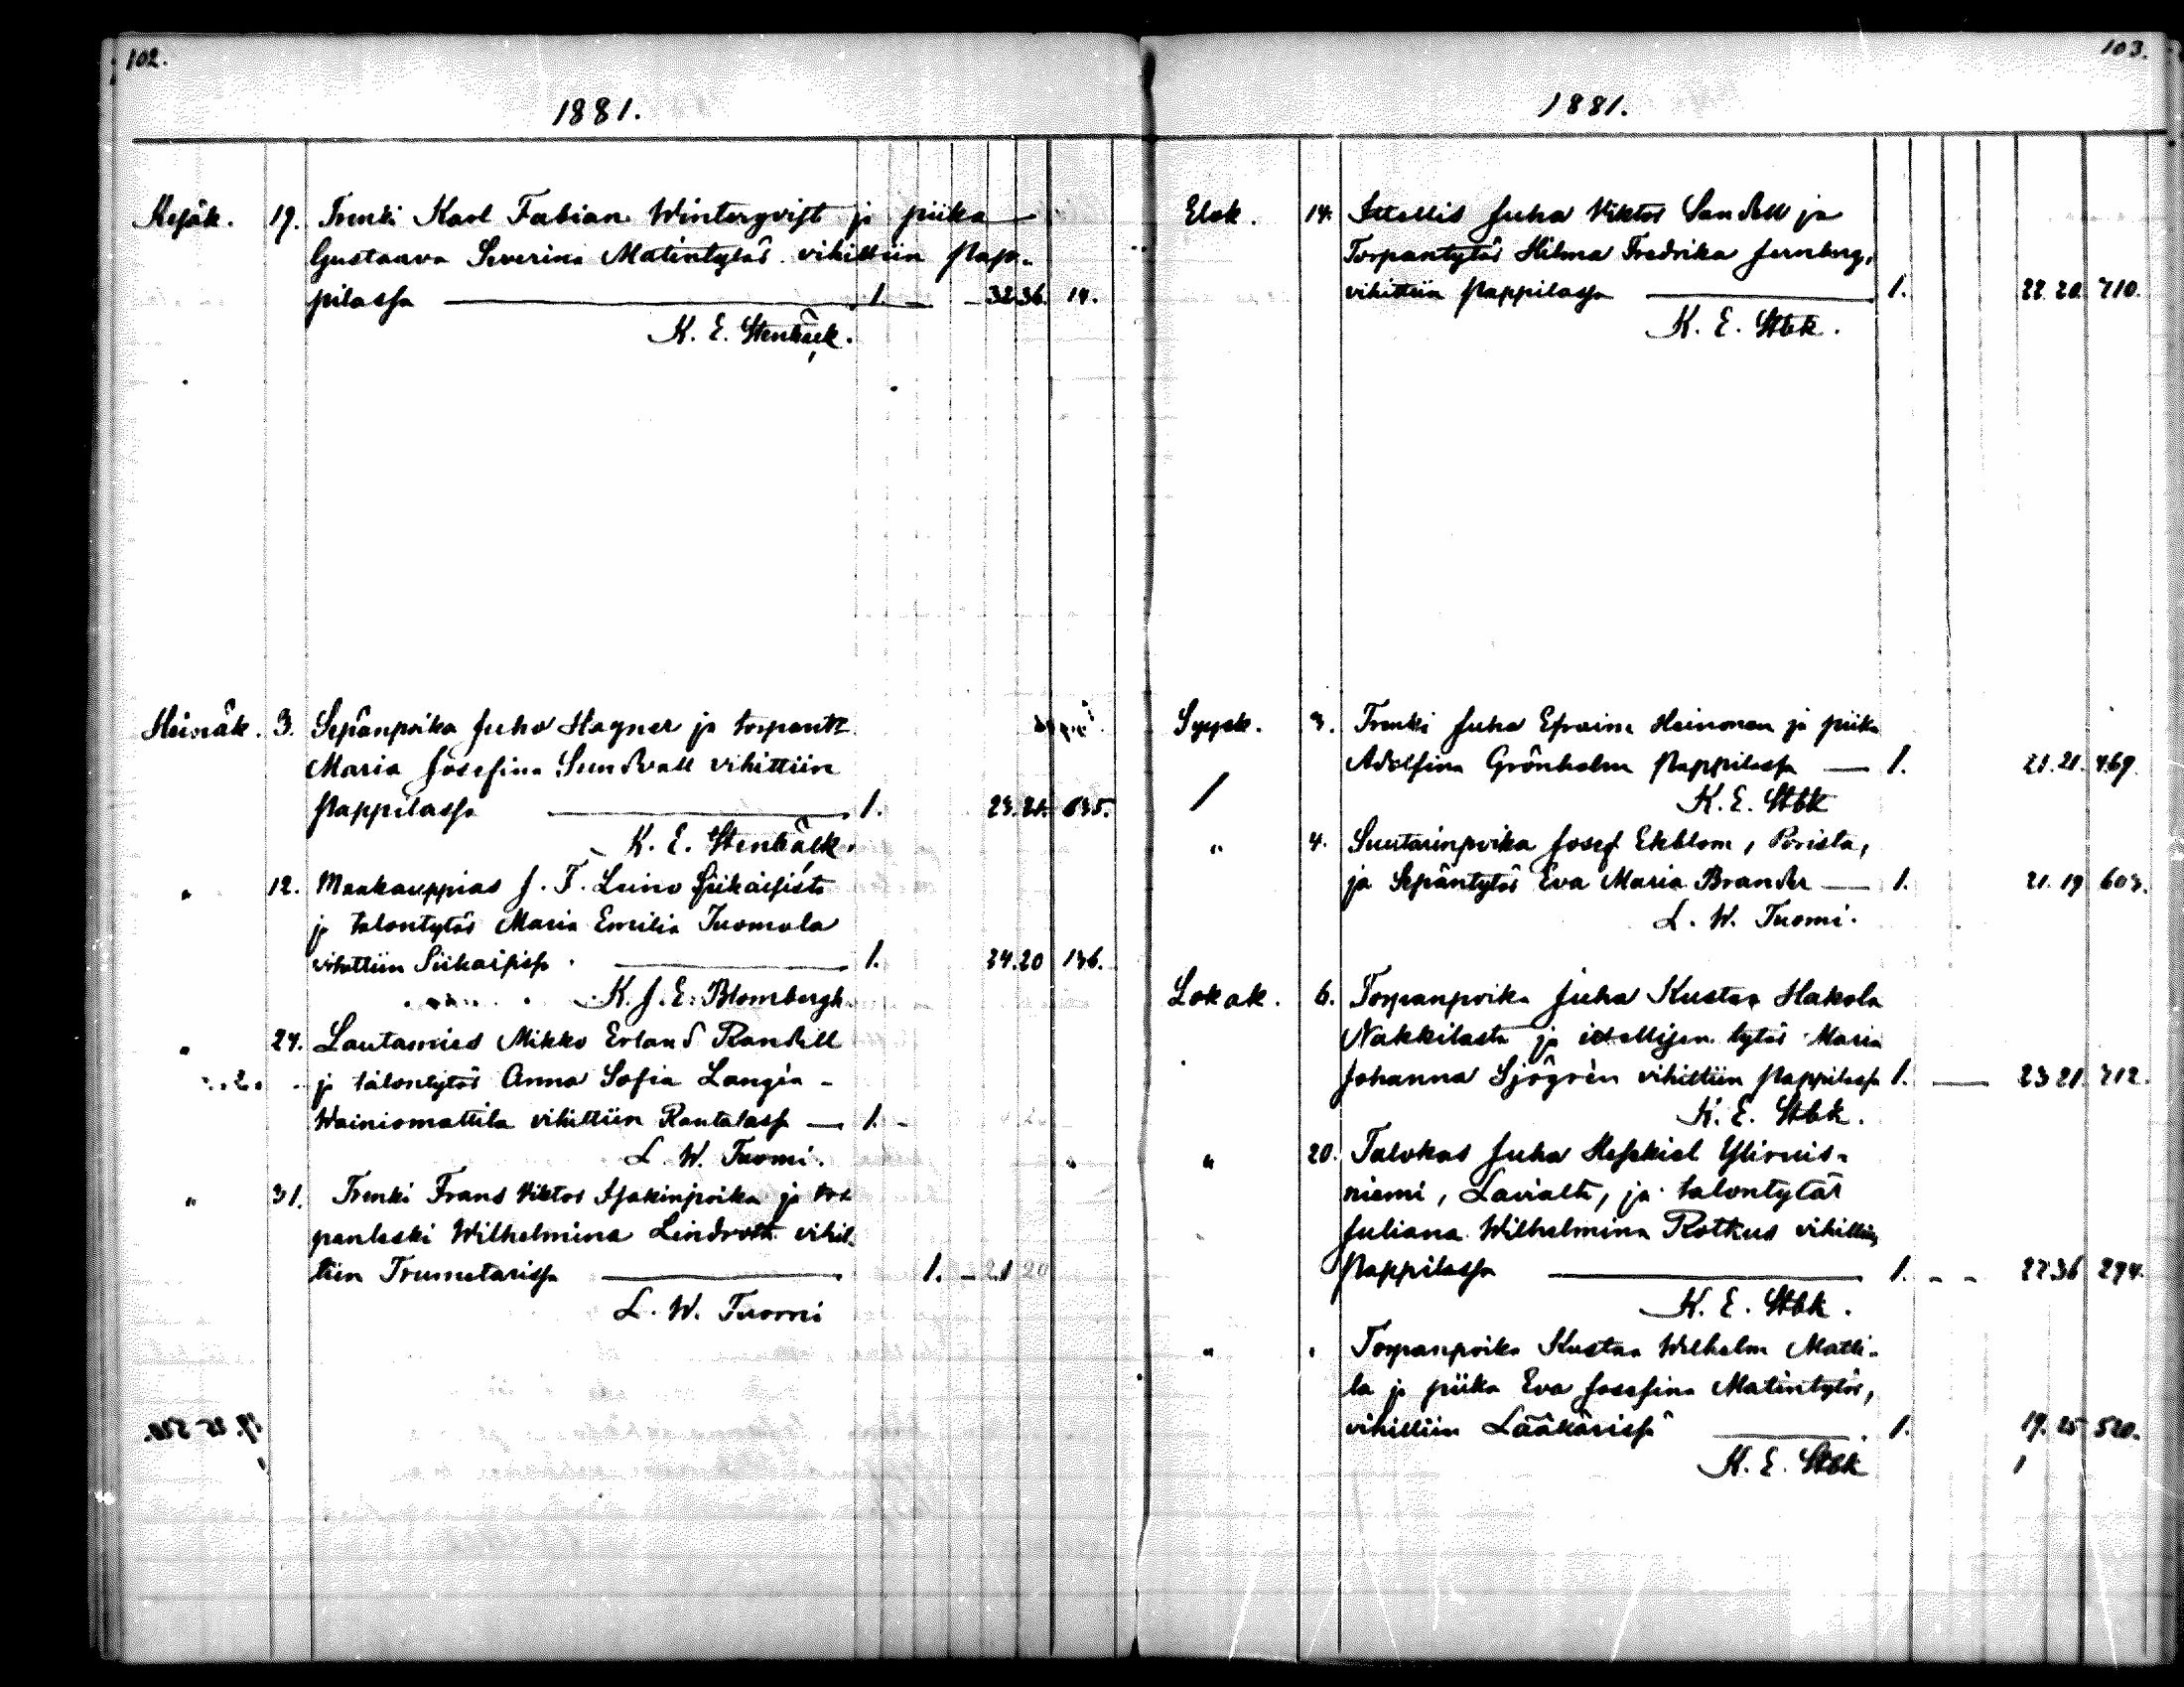 102.
1881.
Kesäk. 19. Trenki Karl Fabian Winterqvist ja piika
Gustaava Severina Matintytär vihittiin Pap-
pilassa 1. 32 36. 14.
K. E. Stenbäck.
Heinäk. 3. Sepänpoika Juho Hagner ja torpantt
Maria Josefina Sundvall vihittiin
Pappilassa 1. 23. 21. 635.
K. E. Stenbäck.
" 12. Maakauppias J. F. Leino Siikaisista
ja talontytär Maria Emilia Tuomola
vihittiin Siikaisissa 1. 24. 20 136.
K. J. E. Blombergh.
" 24. Lautamies Mikko Erland Randell
ja talontytär Anna Sofia Langén-
Wainiomattila vihittiin Rantalassa 1.
L. W. Tuomi.
" 31. Trenki Frans Viktor Isakinpoika ja tor
panleski Wilhelmina Lindroth vihit-
tiin Trumetarissa 1. 21 20
L. W. Tuomi
103.
1881.
Elok. 14. Itsellis Juha Viktor Sandell ja
Torpantytär Hilma Fredrika Jernberg,
vihittiin Pappilassa 1. 22. 20. 710.
K. E. Stbk.
Syysk. 3. Trenki Juha Efraim Heinonen ja piika
Adolfina Grönholm Pappilassa 1. 21. 21. 469.
K. E. Stbk
" 4. Suutarinpoika Josef Ekblom, Porista,
ja Sepäntytär Eva Maria Brander 1. 21. 19 603.
L. W. Tuomi.
Lokak. 6. Torpanpoika Juha Kustaa Hakola
Nakkilasta ja itsellisen tytär Maria
Johanna Sjögrén vihittiin Pappilassa 1. 23 21. 712.
K. E. Stbk.
" 20. Talokas Juha Heskiel Yliruis-
niemi, Lavialta, ja talontytär
Juliana Wilhelmina Rotkus vihittiin
Pappilassa 1. 27 36 294.
K. E. Stbk.
" " Torpanpoika Kustaa Wilhelm Matti-
la ja piika Eva Josefina Matintytär,
vihittiin Lääkärissä 1. 19. 25 520.
K. E. Stbk